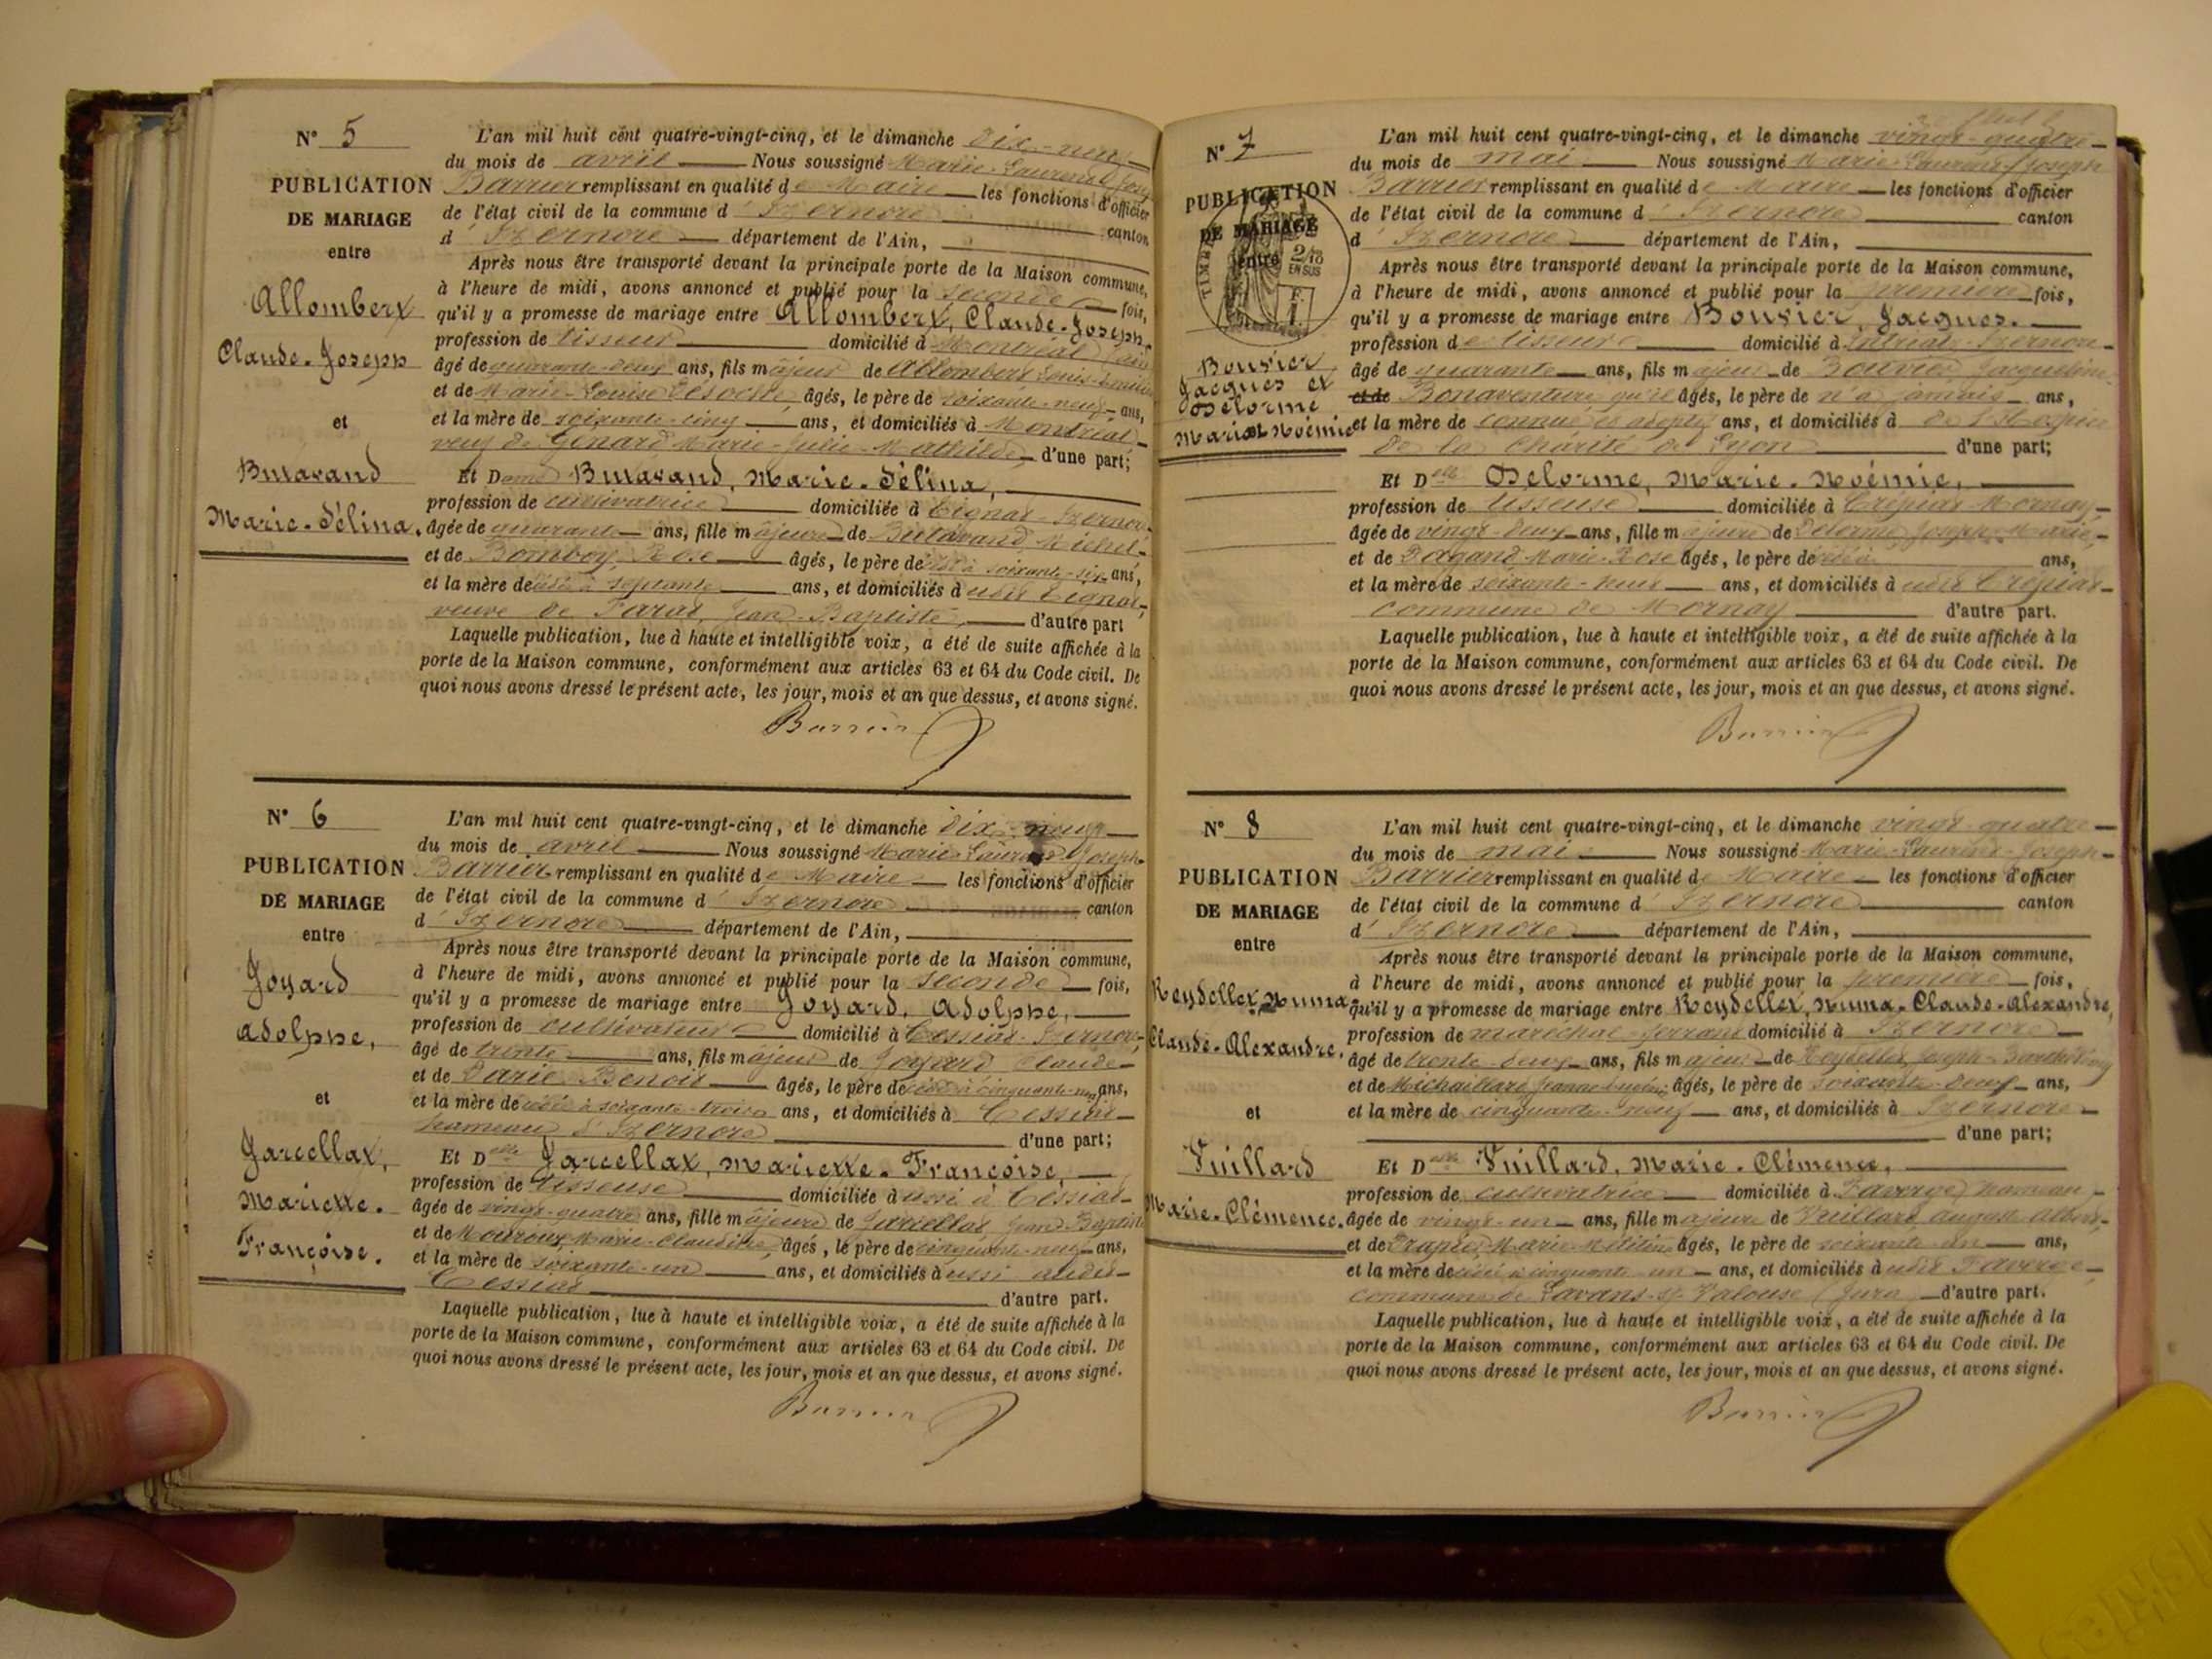 N° 5
PUBLICATION
DE MARIAGE
entre
Allombert
Claude-Joseph
et
Butavand
Marie-Célina.
L'an mil huit cent quatre-vingt-cinq, et le dimanche dix-neuf
du mois de avril Nous soussigné Marie-Laurent-Joseph
Barrier remplissant en qualité de Maire les fonctions d'officier
de l'état civil de la commune d'Izernore canton
d'Izernore département de l'Ain,
Après nous être transporté devant la principale porte de la Maison commune,
à l'heure de midi, avons annoncé et publié pour la seconde fois,
qu'il y a promesse de mariage entre Allombert, Claude-Joseph
profession de tisseur domicilié à Montréal
âgé de quarante-deux ans, fils majeur de Allombert Louis
et de Marie-Louise âgés, le père de soixante-neuf ans,
et la mère de soixante-cinq ans, et domiciliés à Montréal
veuf de Génard Marie-Julie-Mathilde, d'une part;
Et Dame Butavand, Marie-Célina,
profession de cultivatrice domiciliée à Tignat-Izernore
âgée de quarante ans, fille majeure de Butavand Michel
et de Bomboy Rose âgés, le père décédé à soixante-six ans,
et la mère décédée à septante ans, et domiciliés à udit Tignat,
veuve de Jean-Baptiste, d'autre part
Laquelle publication, lue à haute et intelligible voix, a été de suite affichée à la
porte de la Maison commune, conformément aux articles 63 et 64 du Code civil. De
quoi nous avons dressé le présent acte, les jour, mois et an que dessus, et avons signé.
Barrier
N° 6
PUBLICATION
DE MARIAGE
entre
Joyard
Adolphe,
et
Jarcellat,
Mariette.
Françoise.
L'an mil huit cent quatre-vingt-cinq, et le dimanche dix-neuf
du mois de avril Nous soussigné Marie-Laurent-Joseph
Barrier remplissant en qualité de Maire les fonctions d'officier
de l'état civil de la commune d'Izernore canton
d'Izernore département de l'Ain,
Après nous être transporté devant la principale porte de la Maison commune,
à l'heure de midi, avons annoncé et publié pour la seconde fois,
qu'il y a promesse de mariage entre Joyard, Adolphe,
profession de cultivateur domicilié à Cessiat-Izernore,
âgé de trente ans, fils majeur de Joyard Claude
et de Darie Benoit âgés, le père décédé à cinquante-neuf ans,
et la mère décédée à soixante-trois ans, et domiciliés à Cessiat
hameau d'Izernore d'une part;
Et Delle Jarcellat, Mariette-Françoise,
profession de tisseuse domiciliée à ussi à Cessiat
âgée de vingt-quatre ans, fille majeure de Jarcellat Jean Baptiste
et de Marie-Claudine, âgés, le père de cinquante-neuf ans,
et la mère de soixante-un ans, et domiciliés à ussi audit
Cessiat d'autre part.
Laquelle publication, lue à haute et intelligible voix, a été de suite affichée à la
porte de la Maison commune, conformément aux articles 63 et 64 du Code civil. De
quoi nous avons dressé le présent acte, les jour, mois et an que dessus, et avons signé.
Barrier
N° 7
PUBLICATION
DE MARIAGE
entre
TIMBRE
2/10
EN SUS
Bouvier
Jacques et
Delorme
Marie Noémie
L'an mil huit cent quatre-vingt-cinq, et le dimanche vingt-quatre
du mois de mai Nous soussigné Marie-Laurent-Joseph
Barrier remplissant en qualité de Maire les fonctions d'officier
de l'état civil de la commune d'Izernore canton
d'Izernore département de l'Ain,
Après nous être transporté devant la principale porte de la Maison commune,
à l'heure de midi, avons annoncé et publié pour la première fois,
qu'il y a promesse de mariage entre Bouvier, Jacques.
profession de tisseur domicilié à Intriat-Izernore
âgé de quarante ans, fils majeur de Bouvier Jacqueline
et de Bonaventure qu'il âgés, le père de n'a jamais ans,
et la mère de connue et adopté ans, et domiciliés à de l'Hospice
de la Charité de Lyon d'une part;
Et Delle Delorme, Marie-Noémie,
profession de tisseuse domiciliée à Crépiat-Mornay
âgée de vingt-deux ans, fille majeure de Delorme Joseph-Marie,
et de Dagand Marie-Rose âgés, le père décédé ans,
et la mère de soixante-neuf ans, et domiciliés à udit Crépiat
commune de Mornay d'autre part.
Laquelle publication, lue à haute et intelligible voix, a été de suite affichée à la
porte de la Maison commune, conformément aux articles 63 et 64 du Code civil. De
quoi nous avons dressé le présent acte, les jour, mois et an que dessus, et avons signé.
Barrier
N° 8
PUBLICATION
DE MARIAGE
entre
Reydellet, Numa
Claude-Alexandre.
et
Vuillard
Marie-Clémence.
L'an mil huit cent quatre-vingt-cinq, et le dimanche vingt-quatre
du mois de mai Nous soussigné Marie-Laurent-Joseph
Barrier remplissant en qualité de Maire les fonctions d'officier
de l'état civil de la commune d'Izernore canton
d'Izernore département de l'Ain,
Après nous être transporté devant la principale porte de la Maison commune,
à l'heure de midi, avons annoncé et publié pour la première fois,
qu'il y a promesse de mariage entre Reydellet, Numa-Claude-Alexandre,
profession de maréchal-ferrant domicilié à Izernore
âgé de trente-deux ans, fils majeur de Reydellet Joseph-Barthélemy
et de Michaillard Jeanne-Eugénie, âgés, le père de soixante-deux ans,
et la mère de cinquante-neuf ans, et domiciliés à Izernore
d'une part;
Et Delle Vuillard, Marie-Clémence,
profession de cultivatrice domiciliée à Faverge hameau
âgée de vingt-un ans, fille majeure de Vuillard August Albert,
et de Marie âgés, le père de soixante-un ans,
et la mère décédée à cinquante-un ans, et domiciliés à udit Faverge
commune de Lavans-s/-Valouse (Jura d'autre part.
Laquelle publication, lue à haute et intelligible voix, a été de suite affichée à la
porte de la Maison commune, conformément aux articles 63 et 64 du Code civil. De
quoi nous avons dressé le présent acte, les jour, mois et an que dessus, et avons signé.
Barrier